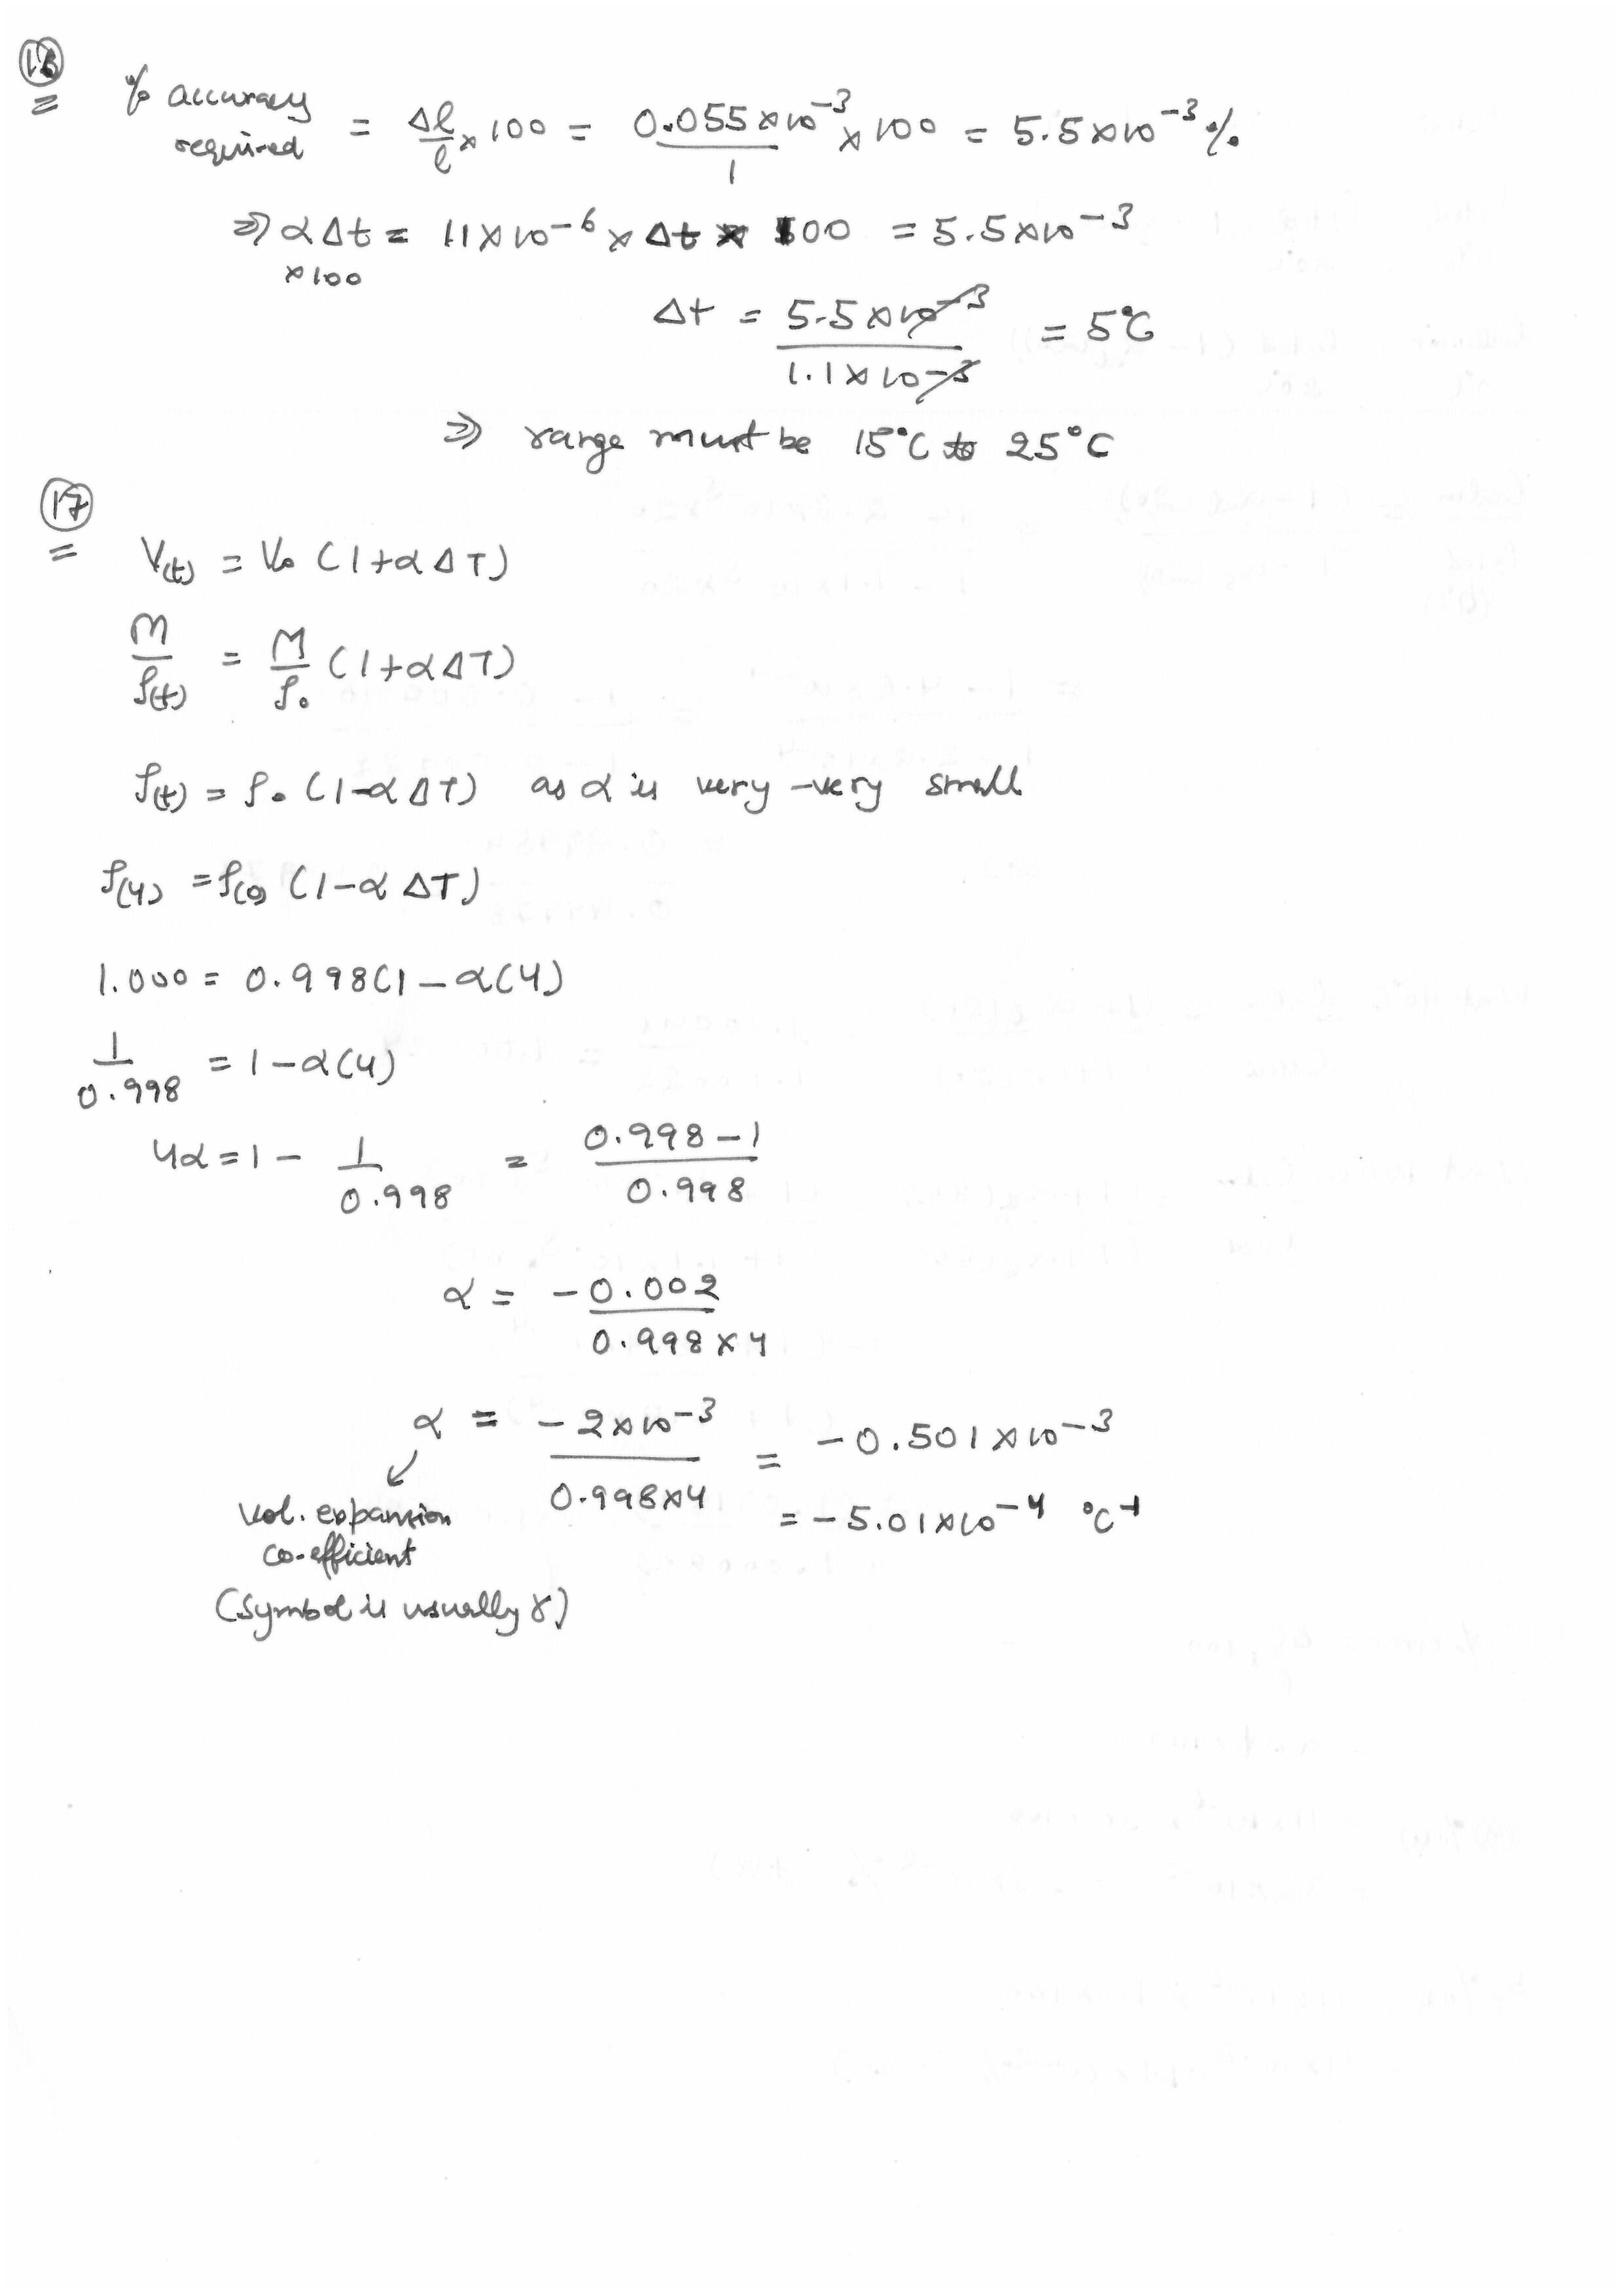 16
% accuracy required = Δl/l × 100 = 0.055×10⁻³/1 × 100 = 5.5×10⁻³ %
⇒ αΔt ×100 = 11×10⁻⁶ × Δt × 100 = 5.5×10⁻³
Δt = 5.5×10⁻³/1.1×10⁻³ = 5°C
⇒ range must be 15°C to 25°C
17
V(t) = V₀ (1+αΔT)
M/ρ(t) = M/ρ₀ (1+αΔT)
ρ(t) = ρ₀ (1-αΔT) as α is very-very small
ρ(4) = ρ(0) (1-αΔT)
1.000 = 0.998(1-α(4)
1/0.998 = 1-α(4)
4α = 1 - 1/0.998 = 0.998-1/0.998
α = -0.002/0.998×4
α = -2×10⁻³/0.998×4 = -0.501×10⁻³
= -5.01×10⁻⁴ °C⁻¹
vol. expansion
co-efficient
(symbol is usually γ)